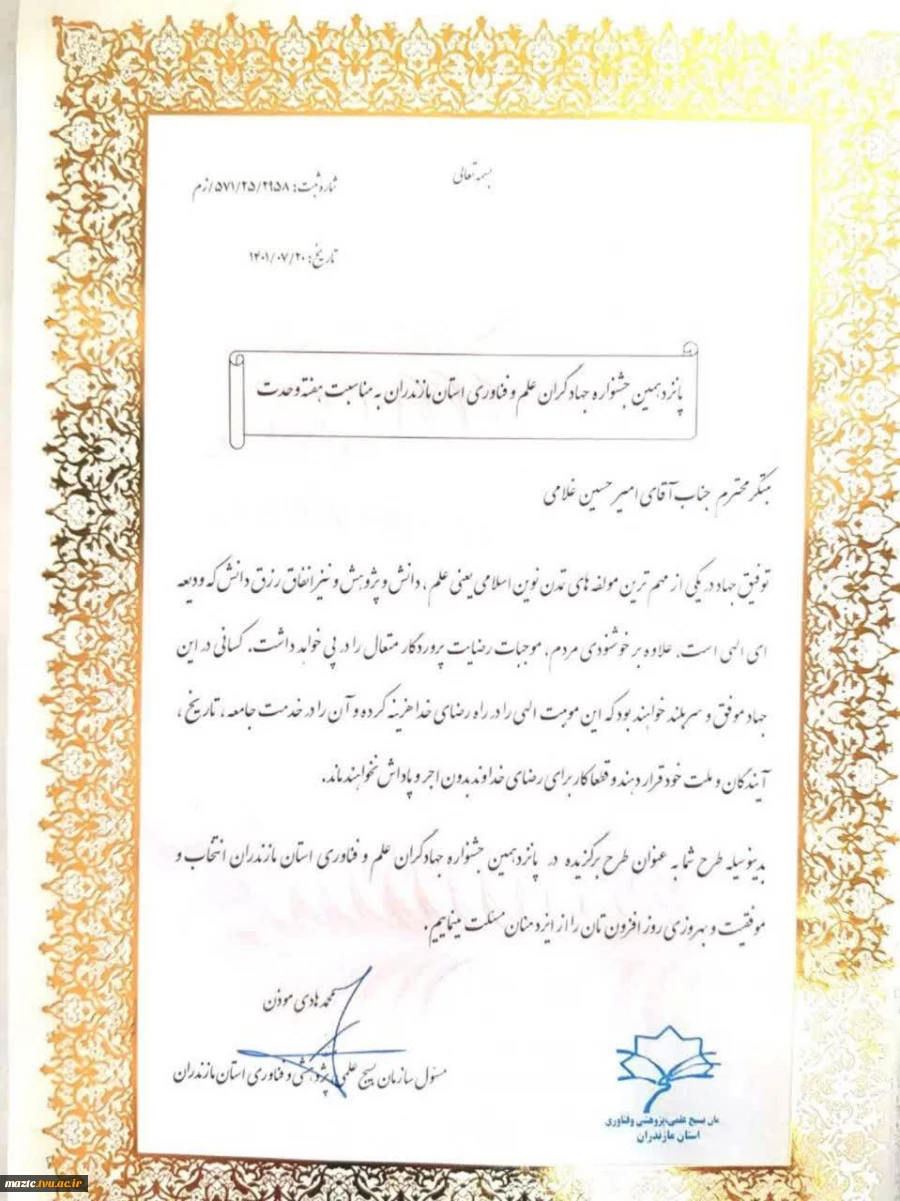 بسمه تعالی
شماره ثبت: ۵۷۱/۲۵/۲۹۵۸/زم
تاریخ: ۱۴۰۱/۰۷/۲۰
پانزدهمین جشنواره جهادگران علم و فناوری استان مازندران به مناسبت هفته وحدت
مبتکر محترم جناب آقای امیرحسین غلامی
توفیق جهاد در یکی از مهم ترین مولفه های تمدن نوین اسلامی یعنی علم، دانش و پژوهش و نیز انفاق رزق دانش که ودیعه
ای الهی است، علاوه بر خوشنودی مردم، موجبات رضایت پروردگار متعال را در پی خواهد داشت. کسانی در این
جهاد موفق و سربلند خواهند بود که این موهبت الهی را در راه رضای خدا هزینه کرده و آن را در خدمت جامعه، تاریخ،
آیندگان و ملت خود قرار دهند و قطعا کار برای رضای خداوند بدون اجر و پاداش نخواهند ماند.
بدینوسیله طرح شما به عنوان طرح برگزیده در پانزدهمین جشنواره جهادگران علم و فناوری استان مازندران انتخاب و
موفقیت و بهروزی روز افزون تان را از ایزد منان مسئلت مینماییم.
محمد هادی موذن
مسئول سازمان بسیج علمی، پژوهشی و فناوری استان مازندران
مان بسیج علمی،پژوهشی وفناوری
استان مازندران
maztc.tvu.ac.ir